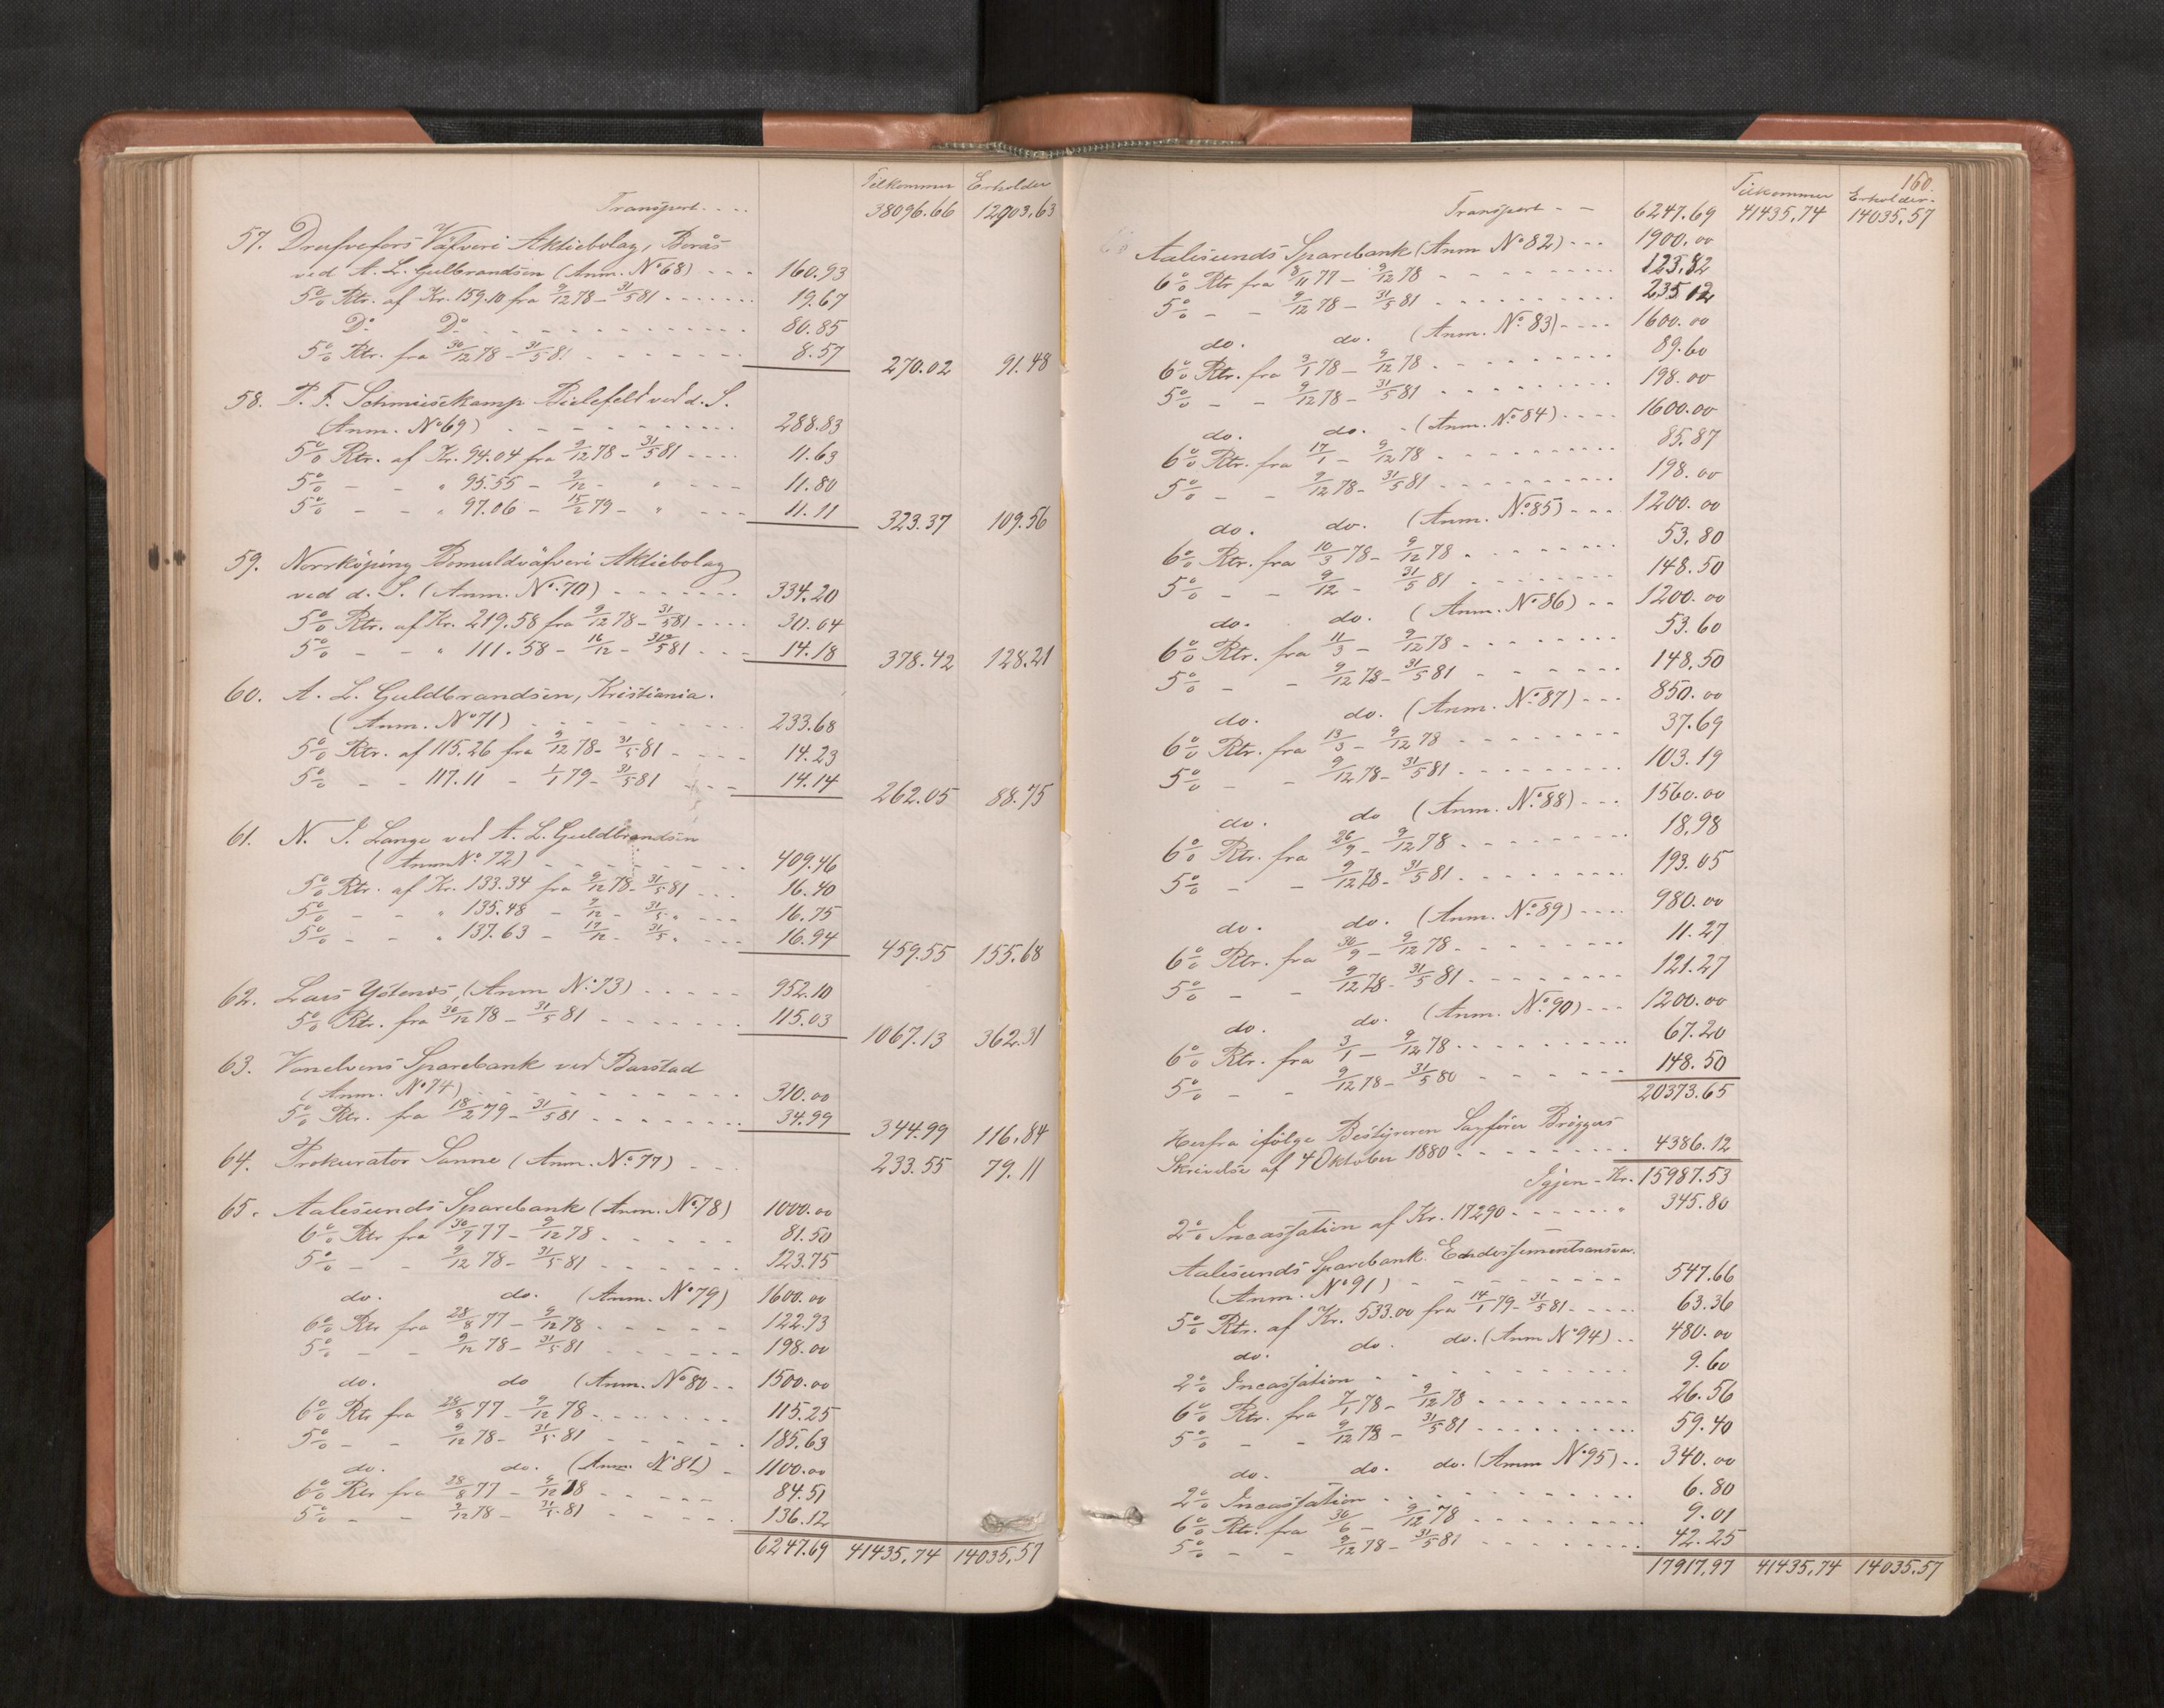 Tilkommer Erholder
Transport . . . . 38096.66 12903,63
57. Drufvefors Väfveri Aktiebolag, Borås
ved A. L. Gulbrandsen (Anm. No 68) - - - 160.93
5% Rtr. af Kr. 159.10 fra 9/12 78 - 31/5 81 . . . . . . 19.67
Do Do . . . . . . . . . . . 80.85
5% Rtr. fra 30/12 78 - 31/5 81 . . . . . . 8.57 270.02 91.48
58. P. F. Schmiesekamp Bielefeld ved d. S.
(Anm. No 69) - - - - - - - - 288.83
5% Rtr. af Kr. 94.04 fra 9/12 78 - 31/5 81 . . . . 11.63
5% - - " 95.55 - 9/12 - " - - - - 11.80
5% - - " 97.06 - 15/2 79 - " - - - 11.11 323.37 109.56
59. Norrköping Bomuldväfveri Aktiebolag
ved d. S. (Anm. No 70) - - - - - - - 334.20
5% Rtr. af Kr. 219.58 fra 9/12 78 - 31/5 81 . . . . 30.04
5% - - " 111.58 - 16/12 - 31/5 81 . . . 14.18 378.42 128.21
60. A. L. Guldbrandsen, Kristiania.
(Anm. No 71) - - - - - - - - 233.68
5% Rtr. af 115.26 fra 9/12 78 - 31/5 81 - - - - 14.23
5% - - 117.11 - 1/1 79 - 31/5 81 - - - 14.14 262.05 88.75
61. N. J. Lange ved A. L. Guldbrandsen
(Anm No 72) - - - - - - - - 409.46
5% Rtr. af Kr. 133.34 fra 9/12 78 - 31/5 81 . . . 16.40
5% - - " 135.48 - 9/12 - 31/5 " - - - 16.75
5% - - " 137.63 - 17/12 - 31/5 " - - - 16.94 459.55 155.68
62. Lars (Anm No 73) . . . . . 952.10
5% Rtr. fra 30/12 78 - 31/5 81 - - - - - - - 115.03 1067.13 362.31
63. Vanelvens Sparebank ved Barstad
(Anm. No 74) - - - - - - - - - 310.00
5% Rtr. fra 18/2 79 - 31/5 81 - - - - - - - - 34.99 344.99 116,84
64. Prokurator Sanne (Anm. No 77) - - - 233.55 79.11
65. Aalesunds Sparebank (Anm. No 78) 1000.00
6% Rtr fra 30/7 77 - 9/12 78 - - - - - - 81.50
5% - - 9/12 78 - 31/5 81 - - - - - - - 123.75
do. do. (Anm. No 79) 1600.00
6% Rtr fra 28/8 77 - 9/12 78 - - - - - - 122.93
5% - - 9/12 78 - 31/5 81 - - - - - - - 198.00
do. do (Anm. No 80 - - 1500.00
6% Rtr fra 28/8 77 - 9/12 78 - - - - - - - 115.25
5% - - 9/12 78 - 31/5 81 - - - - - - . 185.63
do. do. (Anm. No 81) - 1100.00
6% Rtr fra 28/8 77 - 9/12 78 - - - - - 84.51
5% - - 9/12 78 - 31/5 81 - - - - - - . 136.12
6247.69 41435,74 14035,57
160.
Tilkommer Erholder.
Transport - - 6247.69 41435,74 14035,57
Aalesunds Sparebank (Anm No 82) - - - 1900.00
6% Rtr fra 8/11 77 - 9/12 78 - - - - - - - - 123.82
5% - - 9/12 78 - 31/5 81 - - - - - - - - - 235 12
do. do. (Anm. No 83) - - - - 1600.00
6% Rtr. fra 3/1 78 - 9/12 78 - - - - - - - - 89.60
5% - - 9/12 78 - 31/5 81 - - - - - - - - 198.00
do. do. - (Anm. No 84) - - - - 1600.00
6% Rtr. fra 17/1 - 9/12 78 - - - - - - - - 85.87
5% - - 9/12 78 - 31/5 81 - - - - - - - - 198.00
do. do. (Anm. No 85) - - - 1200.00
6% Rtr. fra 10/3 78 - 9/12 78 - - - - - - - - 53.80
5% - - 9/12 - 31/5 81 - - - - - - - - 148.50
do. do. (Anm. No 86) - - 1200.00
6% Rtr. fra 11/3 - 9/12 78 - - - - - - - - 53.60
5% - - 9/12 78 - 31/5 81 - - - - - - 148.50
do. do. (Anm. No 87) - - - 850.00
6% Rtr. fra 13/3 - 9/12 78 - - - - - - - - 37.69
5% - 9/12 78 - 31/5 81 - - - - - - - - 103.19
do. do (Anm. No 88) - - - 1560.00
6% Rtr. fra 26/9 - 9/12 78 - - - - - - - - 18,98
5% - - 9/12 78 - 31/5 81 - - - - - - - - 193.05
do. do. (Anm. No 89) - - - - 980.00
6% Rtr. fra 30/9 - 9/12 78 - - - - - - - - 11.27
5% - - 9/12 78 - 31/5 81 - - - - - - - - 121.27
do. do. (Anm. No 90) - - - 1200.00
6% Rtr. fra 3/1 - 9/12 78 - - - - - - - - 67.20
5% - - 9/12 78 - 31/5 80 - - - - - - 148.50
20373.65
Herfra ifølge Bestyreren Sagfører Brøggers
Skrivelse af 4 Oktober 1880 - - - - - - - - - 4386.12
Igjen - Kr. 15987.53
2% Incassation af Kr. 17290 - - - - - - " 345.80
Aalesunds Sparebank. Endossementsansvar.
(Anm. No 91) - - - - - - - - 547.66
5% Rtr. af Kr. 533.00 fra 14/1 79 - 31/5 81 - - - - - 63.36
do. do. do. (Anm No 94) . . 480.00
2% Incassation - - - - - - - - - - 9.60
6% Rtr. fra 7/1 78 - 9/12 78 - - - - - - - - - 26.56
5% - - 9/12 78 - 31/5 81 - - - - - - - - - 59.40
do. do. do. (Anm No 95) . . 340.00
2% Incassation - - - - - - - - - - 6.80
6% Rtr. fra 30/6 - 9/12 78 - - - - - - - - - 9.01
5% - - 9/12 78 - 31/5 81 - - - - - - - - . 42.25
17917,97 41435,74 14035.57